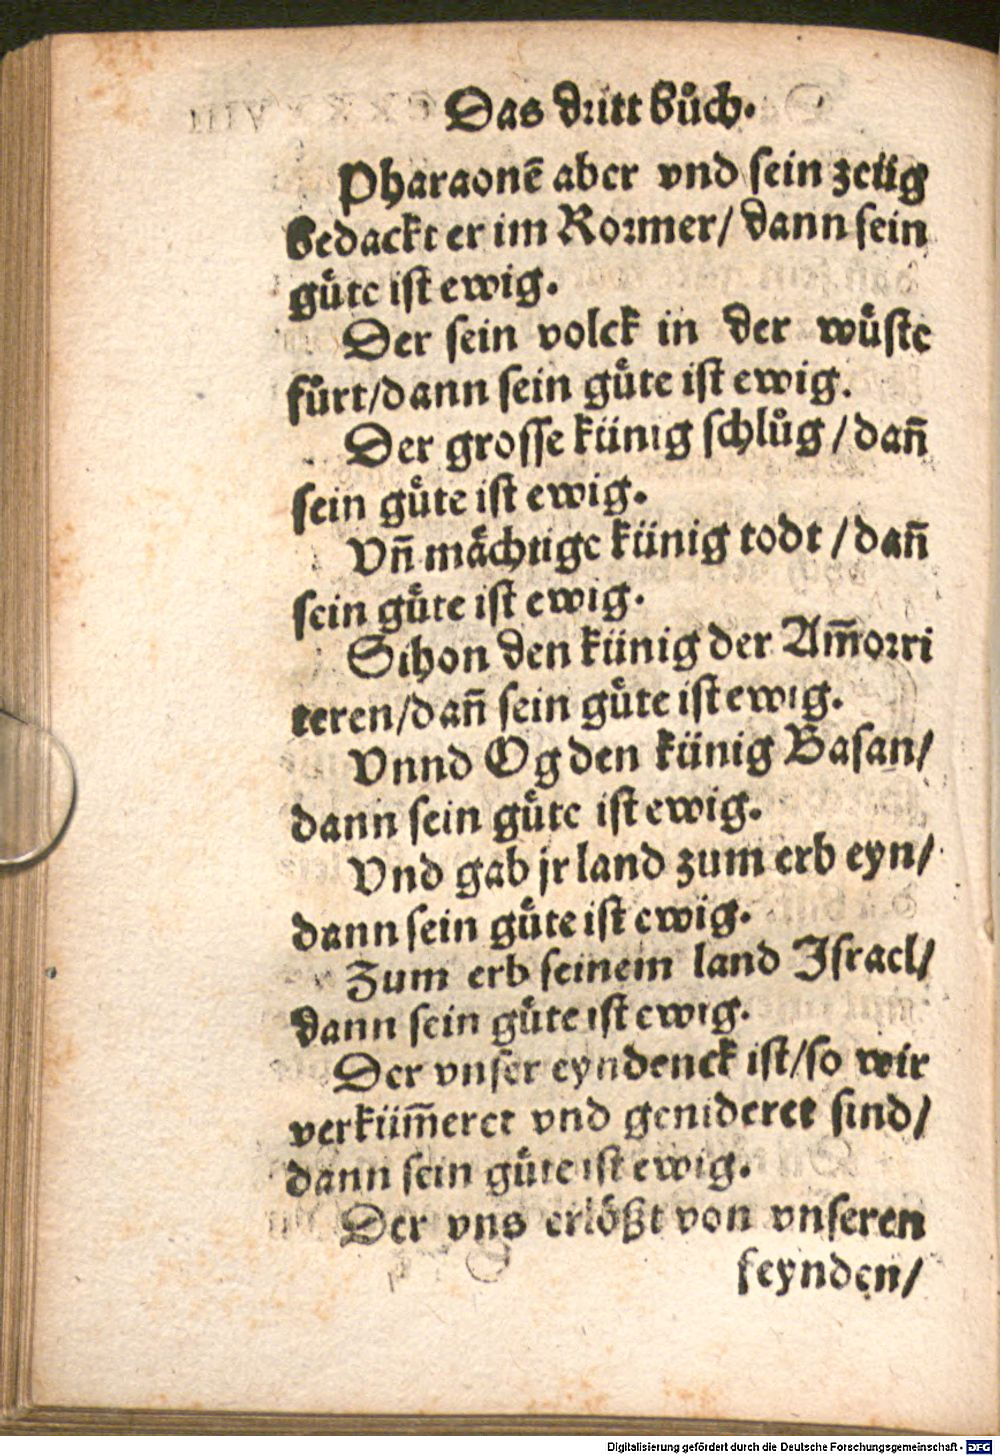 Das dritt bůch.
Pharaonē aber vnd sein zeüg
bedackt er im Rormer/ dann sein
gůte ist ewig.
Der sein volck in der wůste
fůrt/dann sein gůte ist ewig.
Der grosse künig schlůg / dañ
sein gůte ist ewig.
Vñ mächtige künig todt / dañ
sein gůte ist ewig.
Sihon den künig der Am̄orri
teren/dañ sein gůte ist ewig.
Vnnd Og den künig Basan/
dann sein gůte ist ewig.
Vnd gab jr land zum erb eyn/
dann sein gůte ist ewig.
Zum erb seinem land Israel/
dann sein gůte ist ewig.
Der vnser eyndenck ist/so wir
verküm̄eret vnd genideret sind/
dann sein gůte ist ewig.
Der vns erlößt von vnseren
feynden/
Digitalisierung gefördert durch die Deutsche Forschungsgemeinschaft - DFG